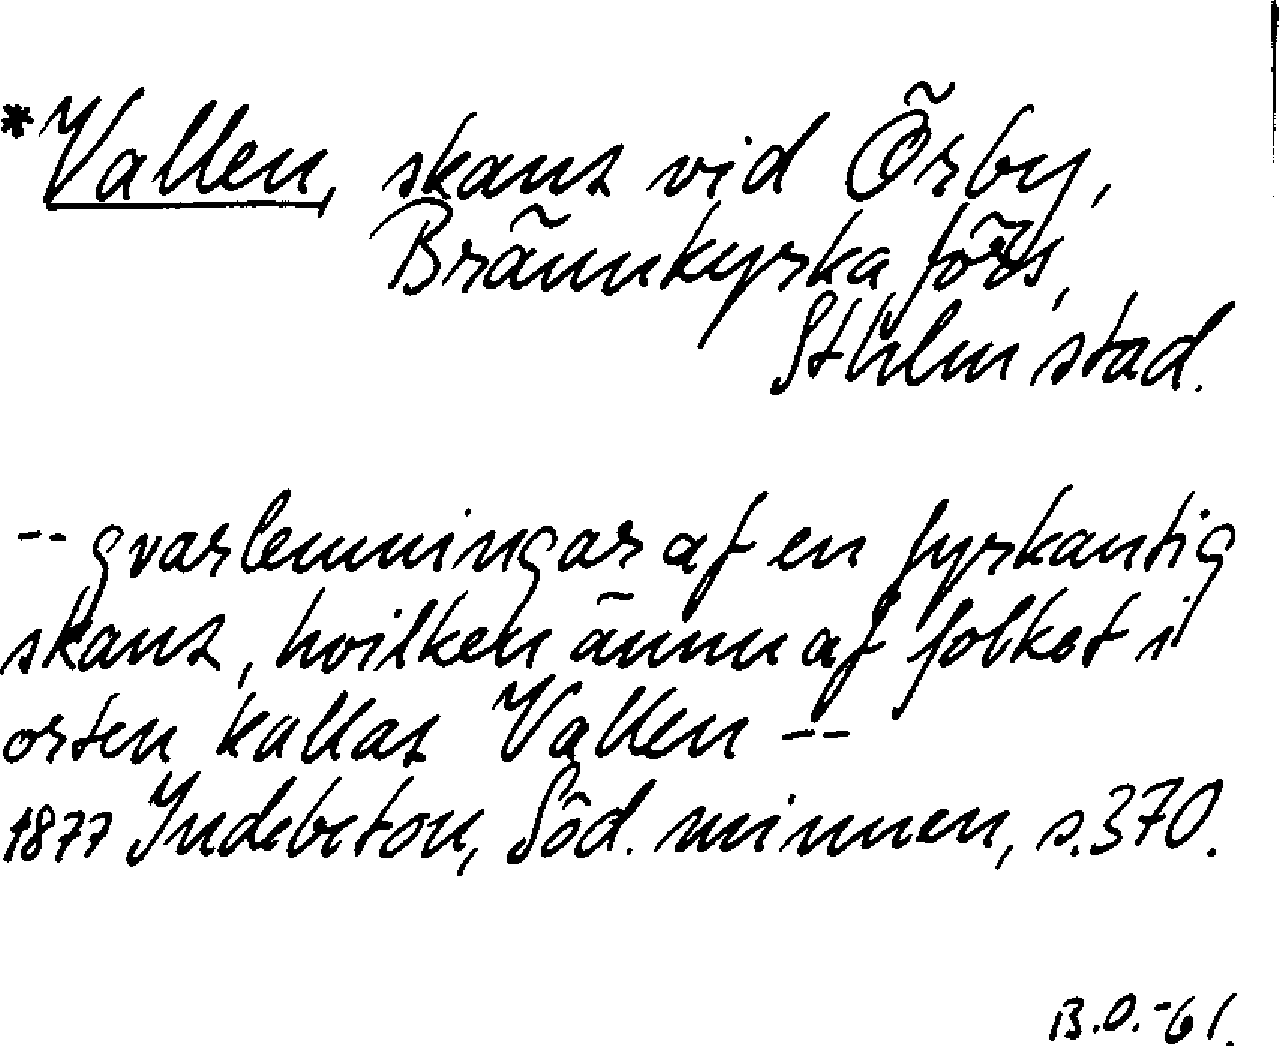 *Vallen, skans vid Örsby,
Brännkyrka förs,
Sthlm stad.
-- qvarlemningar af en fyrkantig
skans, hvilken ännu af folket i
orten kallas Vallen --
1877 Indebetou, Söd. minnen, s. 370.
B.O.-61.